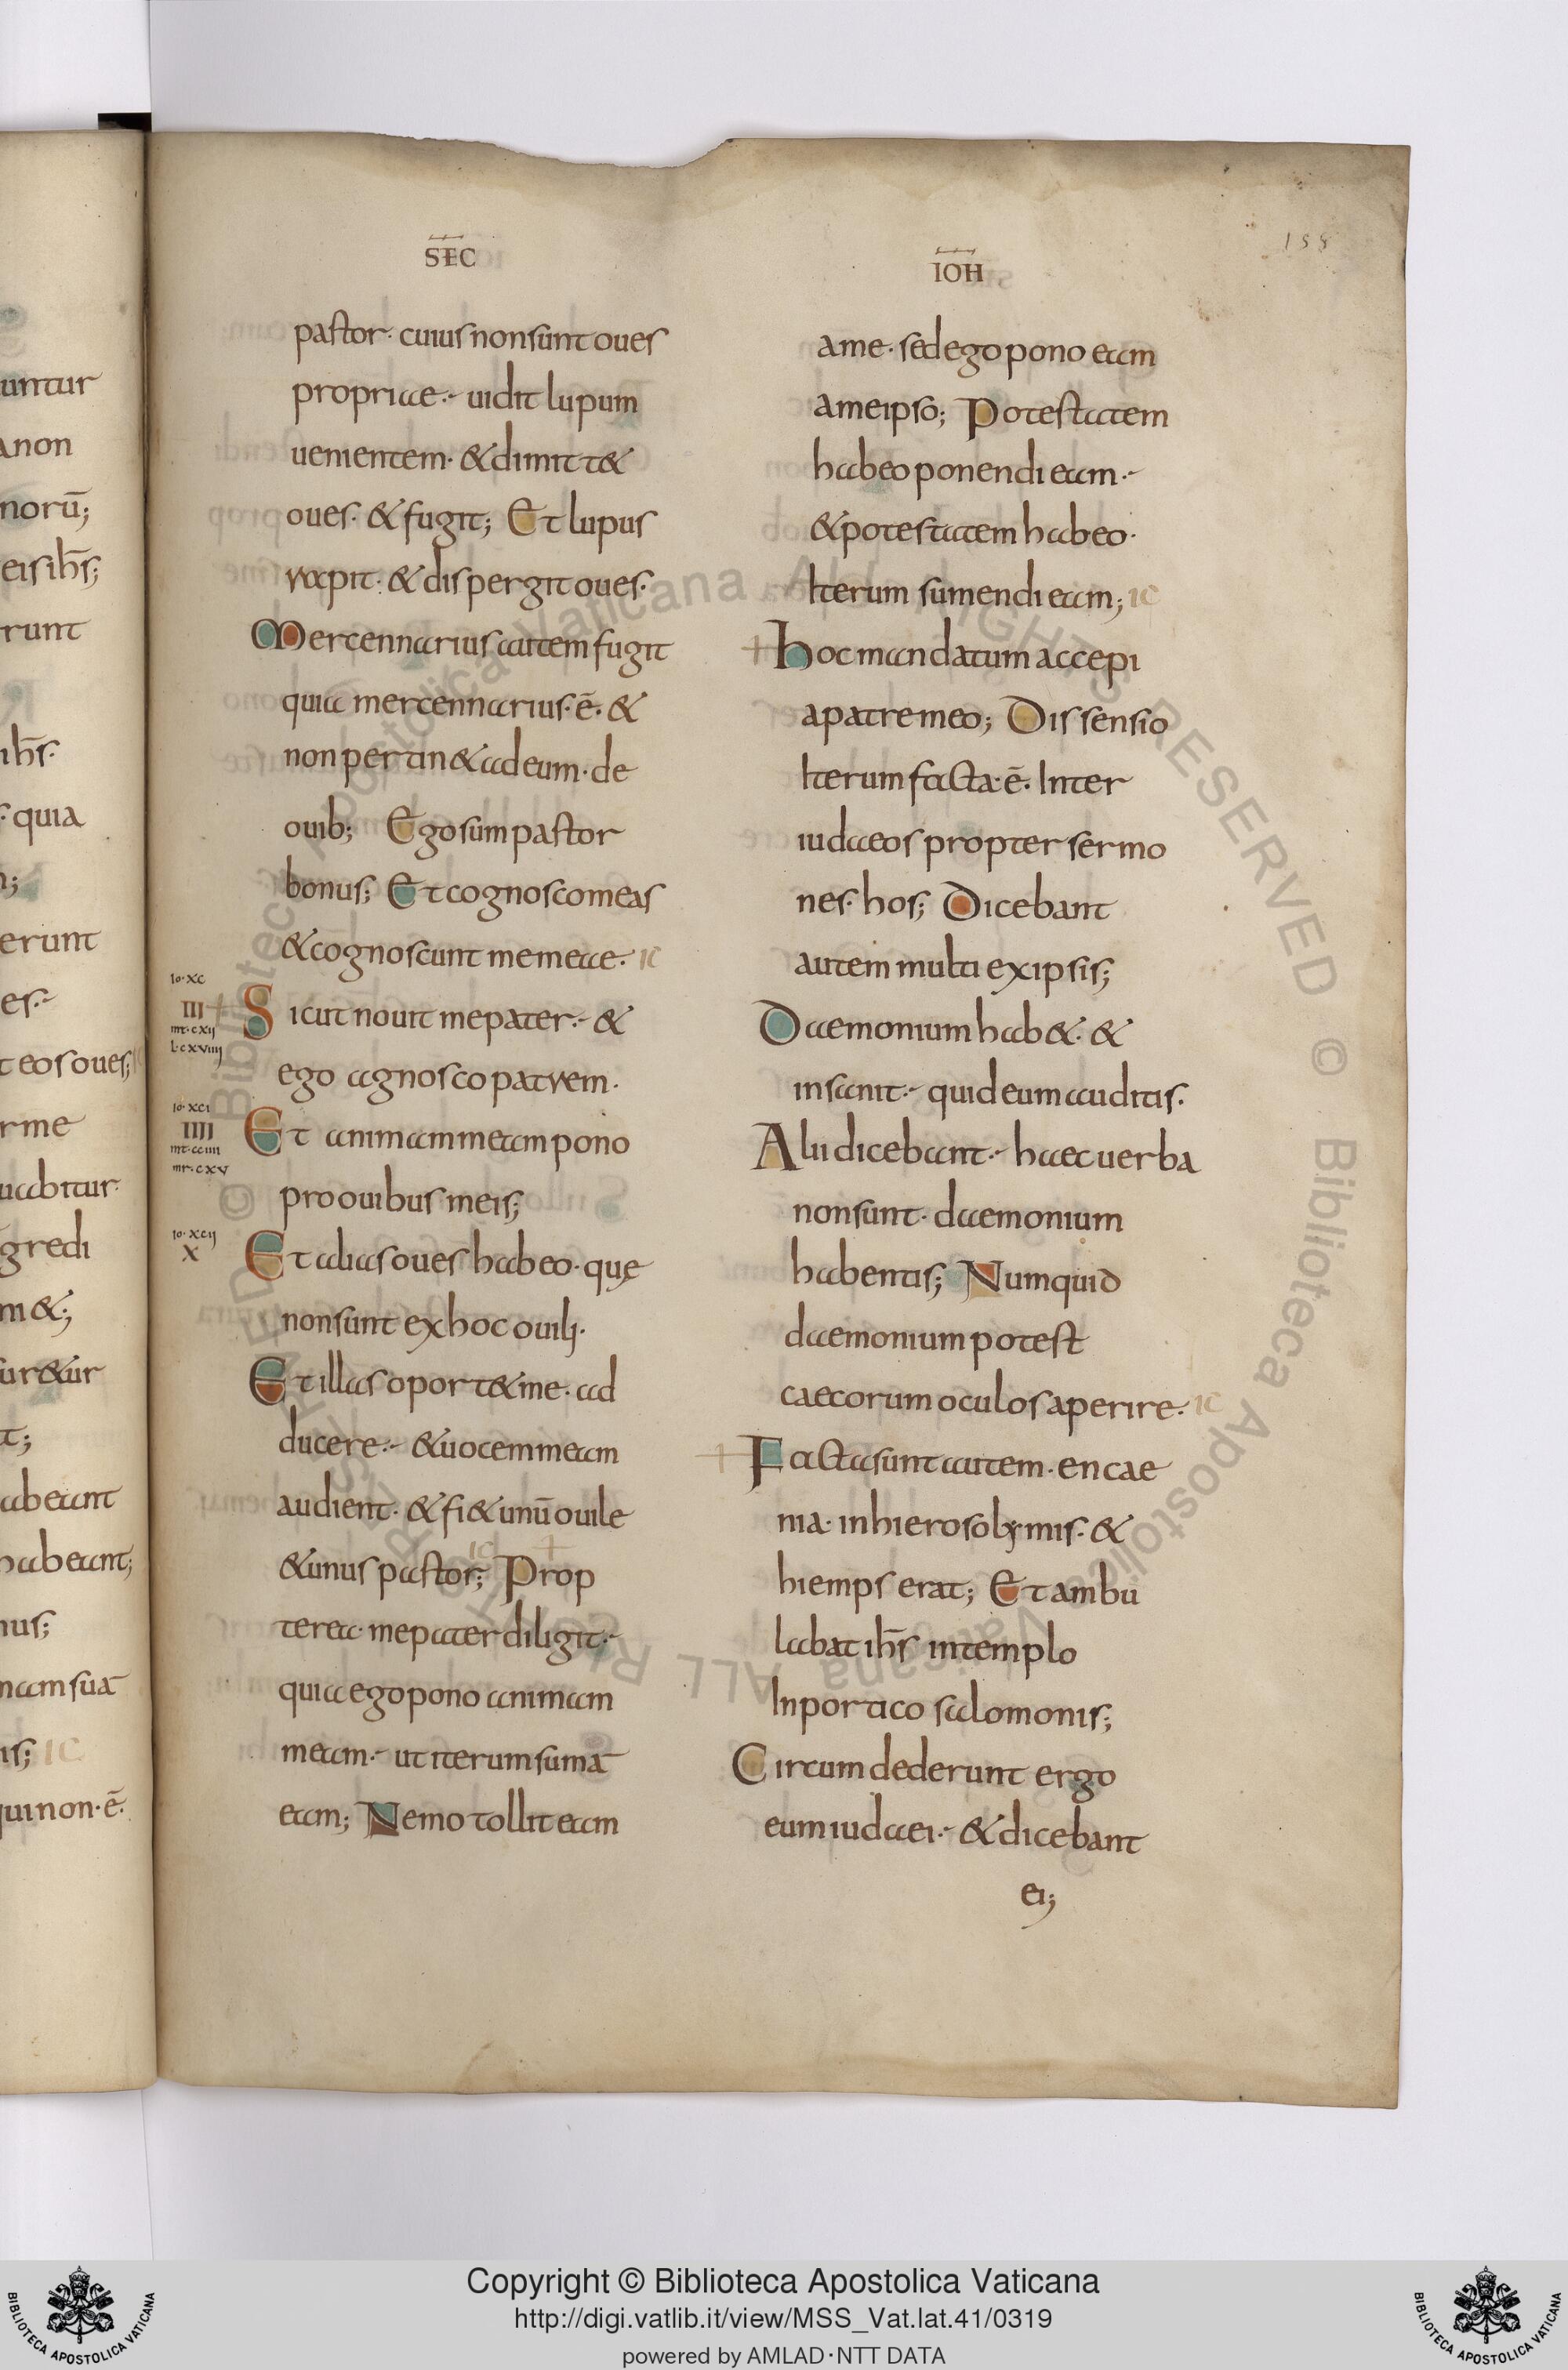 SEC
IOH
158
pastor· cuius non sunt oues
propriae·- uidit lupum
uenientem· & dimitt&
oues· & fugit; Et lupus
rapit· & dispergit oues·
Mercennarius autem fugit
quia mercennarius·ē· &
non pertin& ad eum· de
ouib; Ego sum pastor
bonus; Et cognosco meas
& cognoscunt me meae· IC
io·xc
III
mt·cxij
l·cxviiij
Sicut nouit me pater·- &
ego agnosco patrem·
io·xci
IIII
mr·cxv
Et animam meam pono
pro ouibus meis;
io·xcij
X
Et alias oues habeo· quę
non sunt ex hoc ouili·
Et illas oport& me· ad
ducere·- & uocem meam
audient· & fi& unū ouile
& unus pastor; IC Prop
terea· me pater diligit·-
quia ego pono animam
meam·- ut iterum sumā
eam; Nemo tollit eam
a me· sed ego pono eam
a me ipso; Potestatem
habeo ponendi eam·-
& potestatem habeo·
Iterum sumendi eam; IC
Hoc mandatum accepi
a patre meo; Dissensio
Iterum facta·ē· Inter
iudaeos propter sermo
nes· hos; Dicebant
autem multi ex ipsis;
Daemonium hab&· &
insanit·- quid eum auditis·
Alii dicebant·- haec uerba
non sunt· daemonium
habentis; Numquid
daemonium potest
caecorum oculos aperire· IC
Facta sunt autem· encae
nia· in hierosolymis· &
hiemps erat; Et ambu
labat ihs̄ in templo
In portico salomonis;
Circumdederunt ergo
eum iudaei·- & dicebant
ei;
untur
anon
norū;
eis ihs̄;
runt
ihs̄·
· quia
erunt
es·-
t eos oues;
r me
uabitur·
gredi
m&;
ur&ur
t;
abeant
habeant;
nus;
mam suā
is; IC
qui non·ē·
© Biblioteca Apostolica Vaticana ALL RIGHTS RESERVED
Copyright © Biblioteca Apostolica Vaticana
http://digi.vatlib.it/view/MSS_Vat.lat.41/0319
powered by AMLAD·NTT DATA
BIBLIOTECA APOSTOLICA VATICANA
BIBLIOTECA APOSTOLICA VATICANA